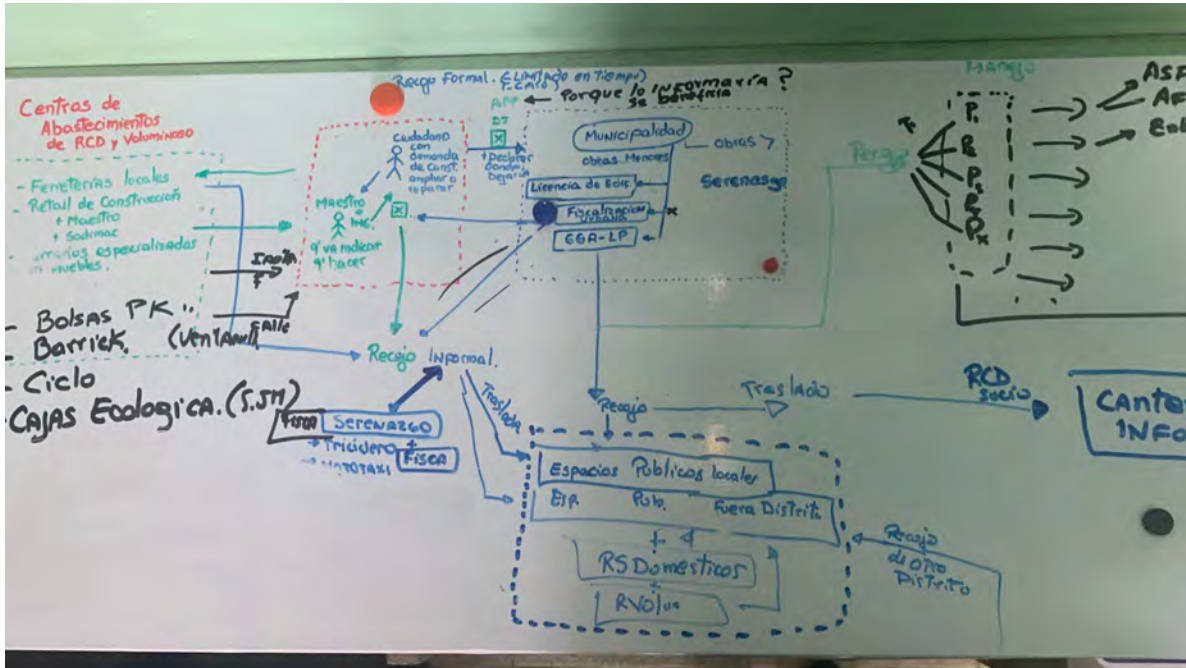 Centros de
Abastecimientos
de RCD y Voluminoso
- Ferreterías locales
- Retail de Construcción
+ Maestro
+ Sodimac
especializadas
muebles.
- Bolsas PK
- Barrick. (Ventanill
- Ciclo
- CAJAS Ecologica. (S.JM)
calle
Recojo Formal. (Limitado en Tiempo)
APP ← Porque lo informaría?
se beneficia
DJ
+ Declarar
donde
dejaría
Ciudadano
con
demanda
de const.
ampliar o
reparar
MAESTRO
q' va indicar
q' hacer
Municipalidad
obras
obras Menores
Serenazgo
Licencia de Edif.
Fiscalización
URBANA
GGA-LP
Recojo Informal.
Fisca
SERENAZGO
→ Triciclero +
Fisca
→ MOTOTAXI
Traslada
Recojo
Traslado
RCD
sucio
CANTE
INFO
Espacios Públicos locales
Esp. Pub. Fuera Distrit.
RS Domesticos
+
RVolum
Recojo
de otro
Distrito
Manejo
P1
P2
P3
Px